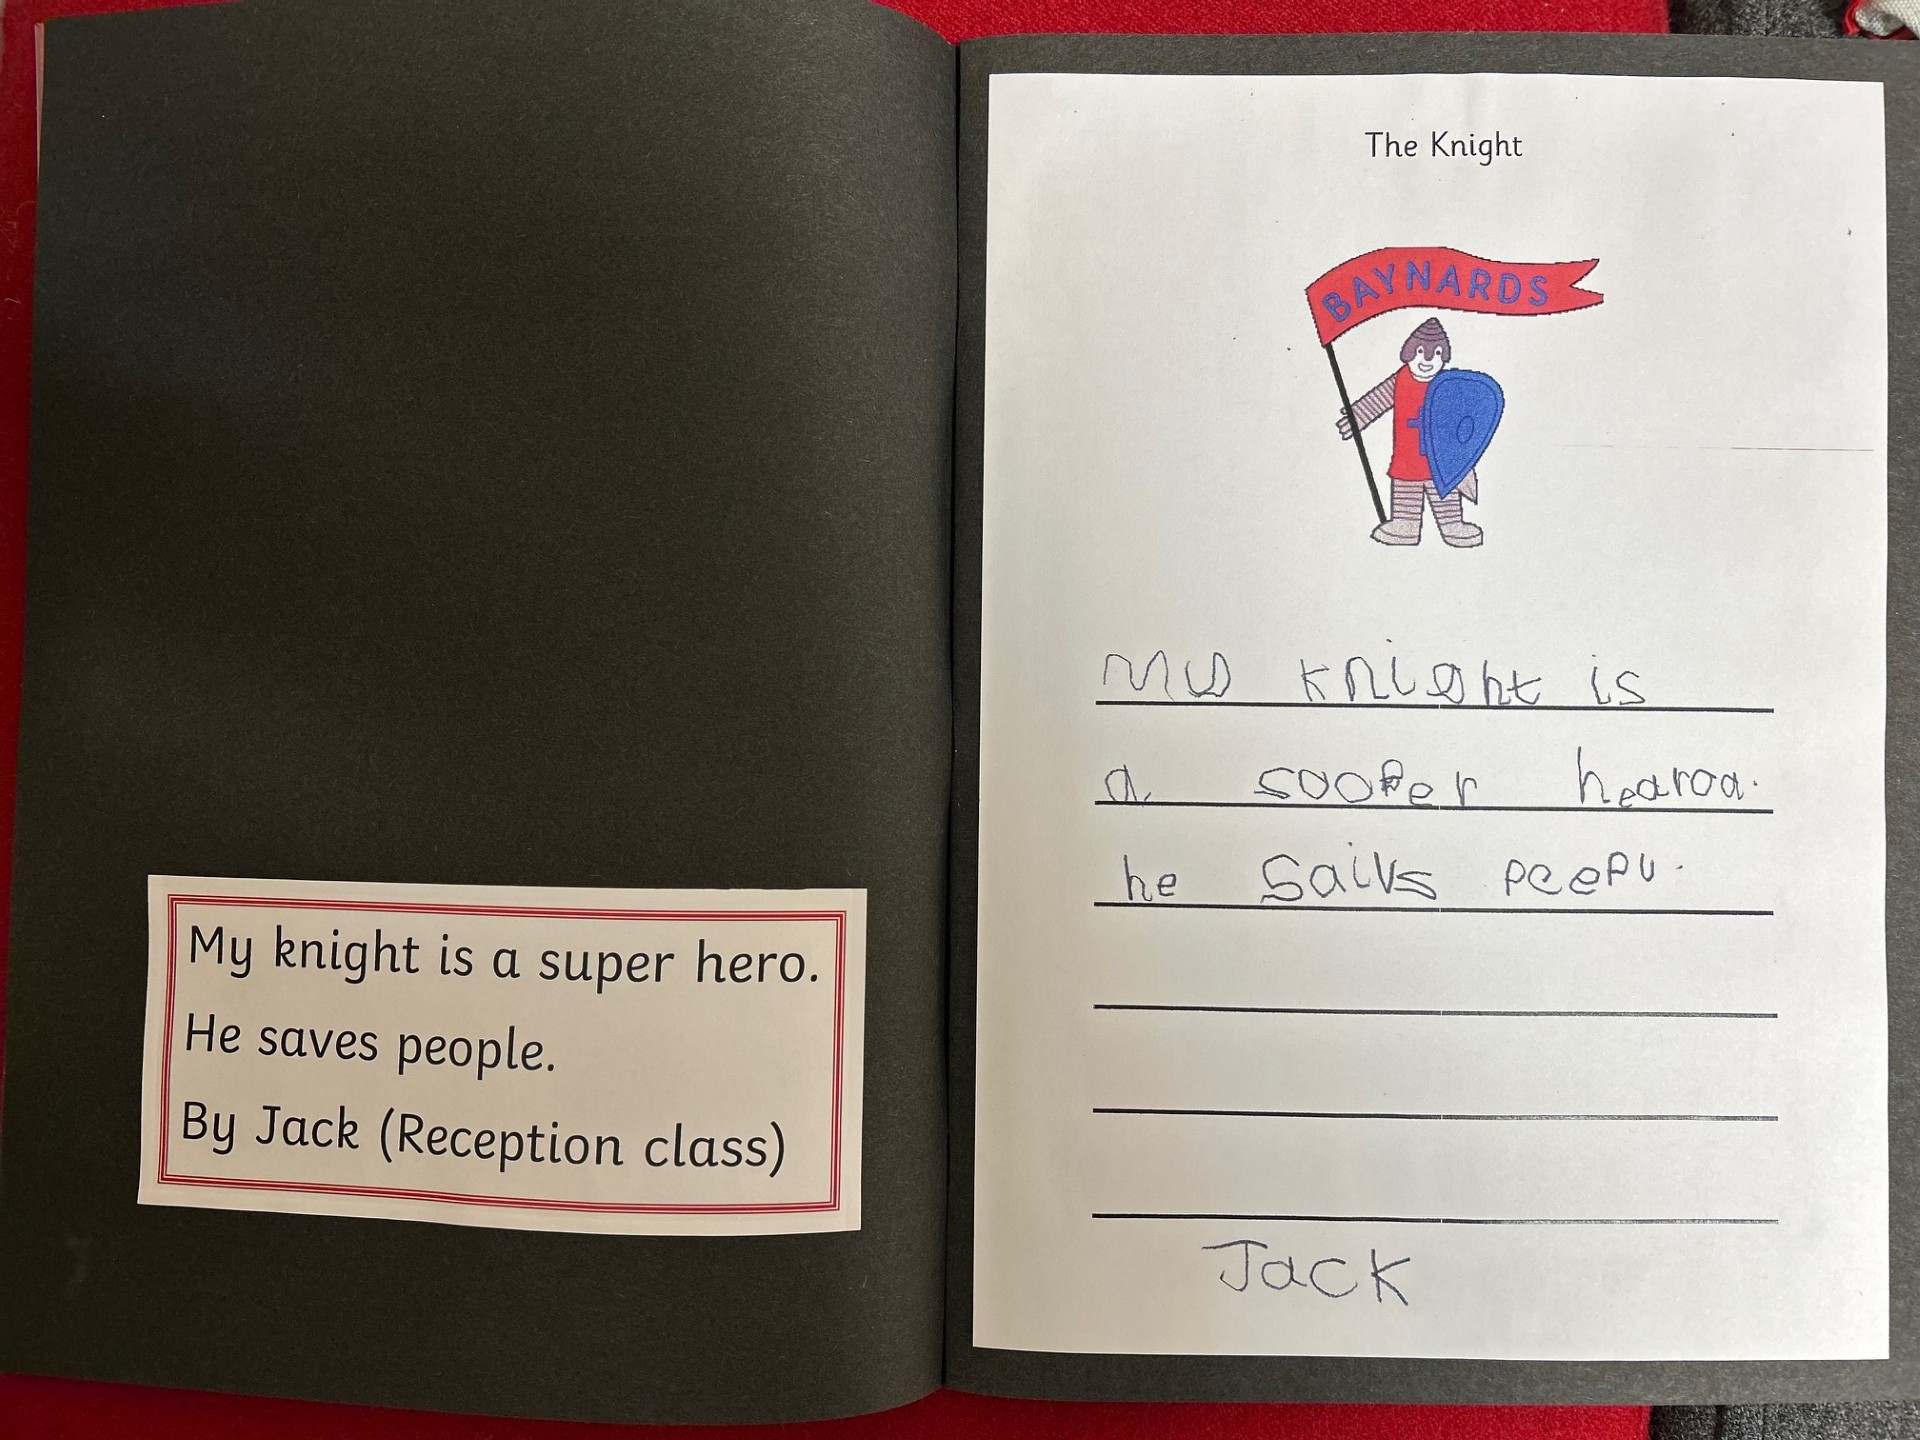 My knight is a super hero.
He saves people.
By Jack (Reception class)
The Knight
BAYNARDS
My knight is
a sooper hearoa.
he saivs peepu.
Jack